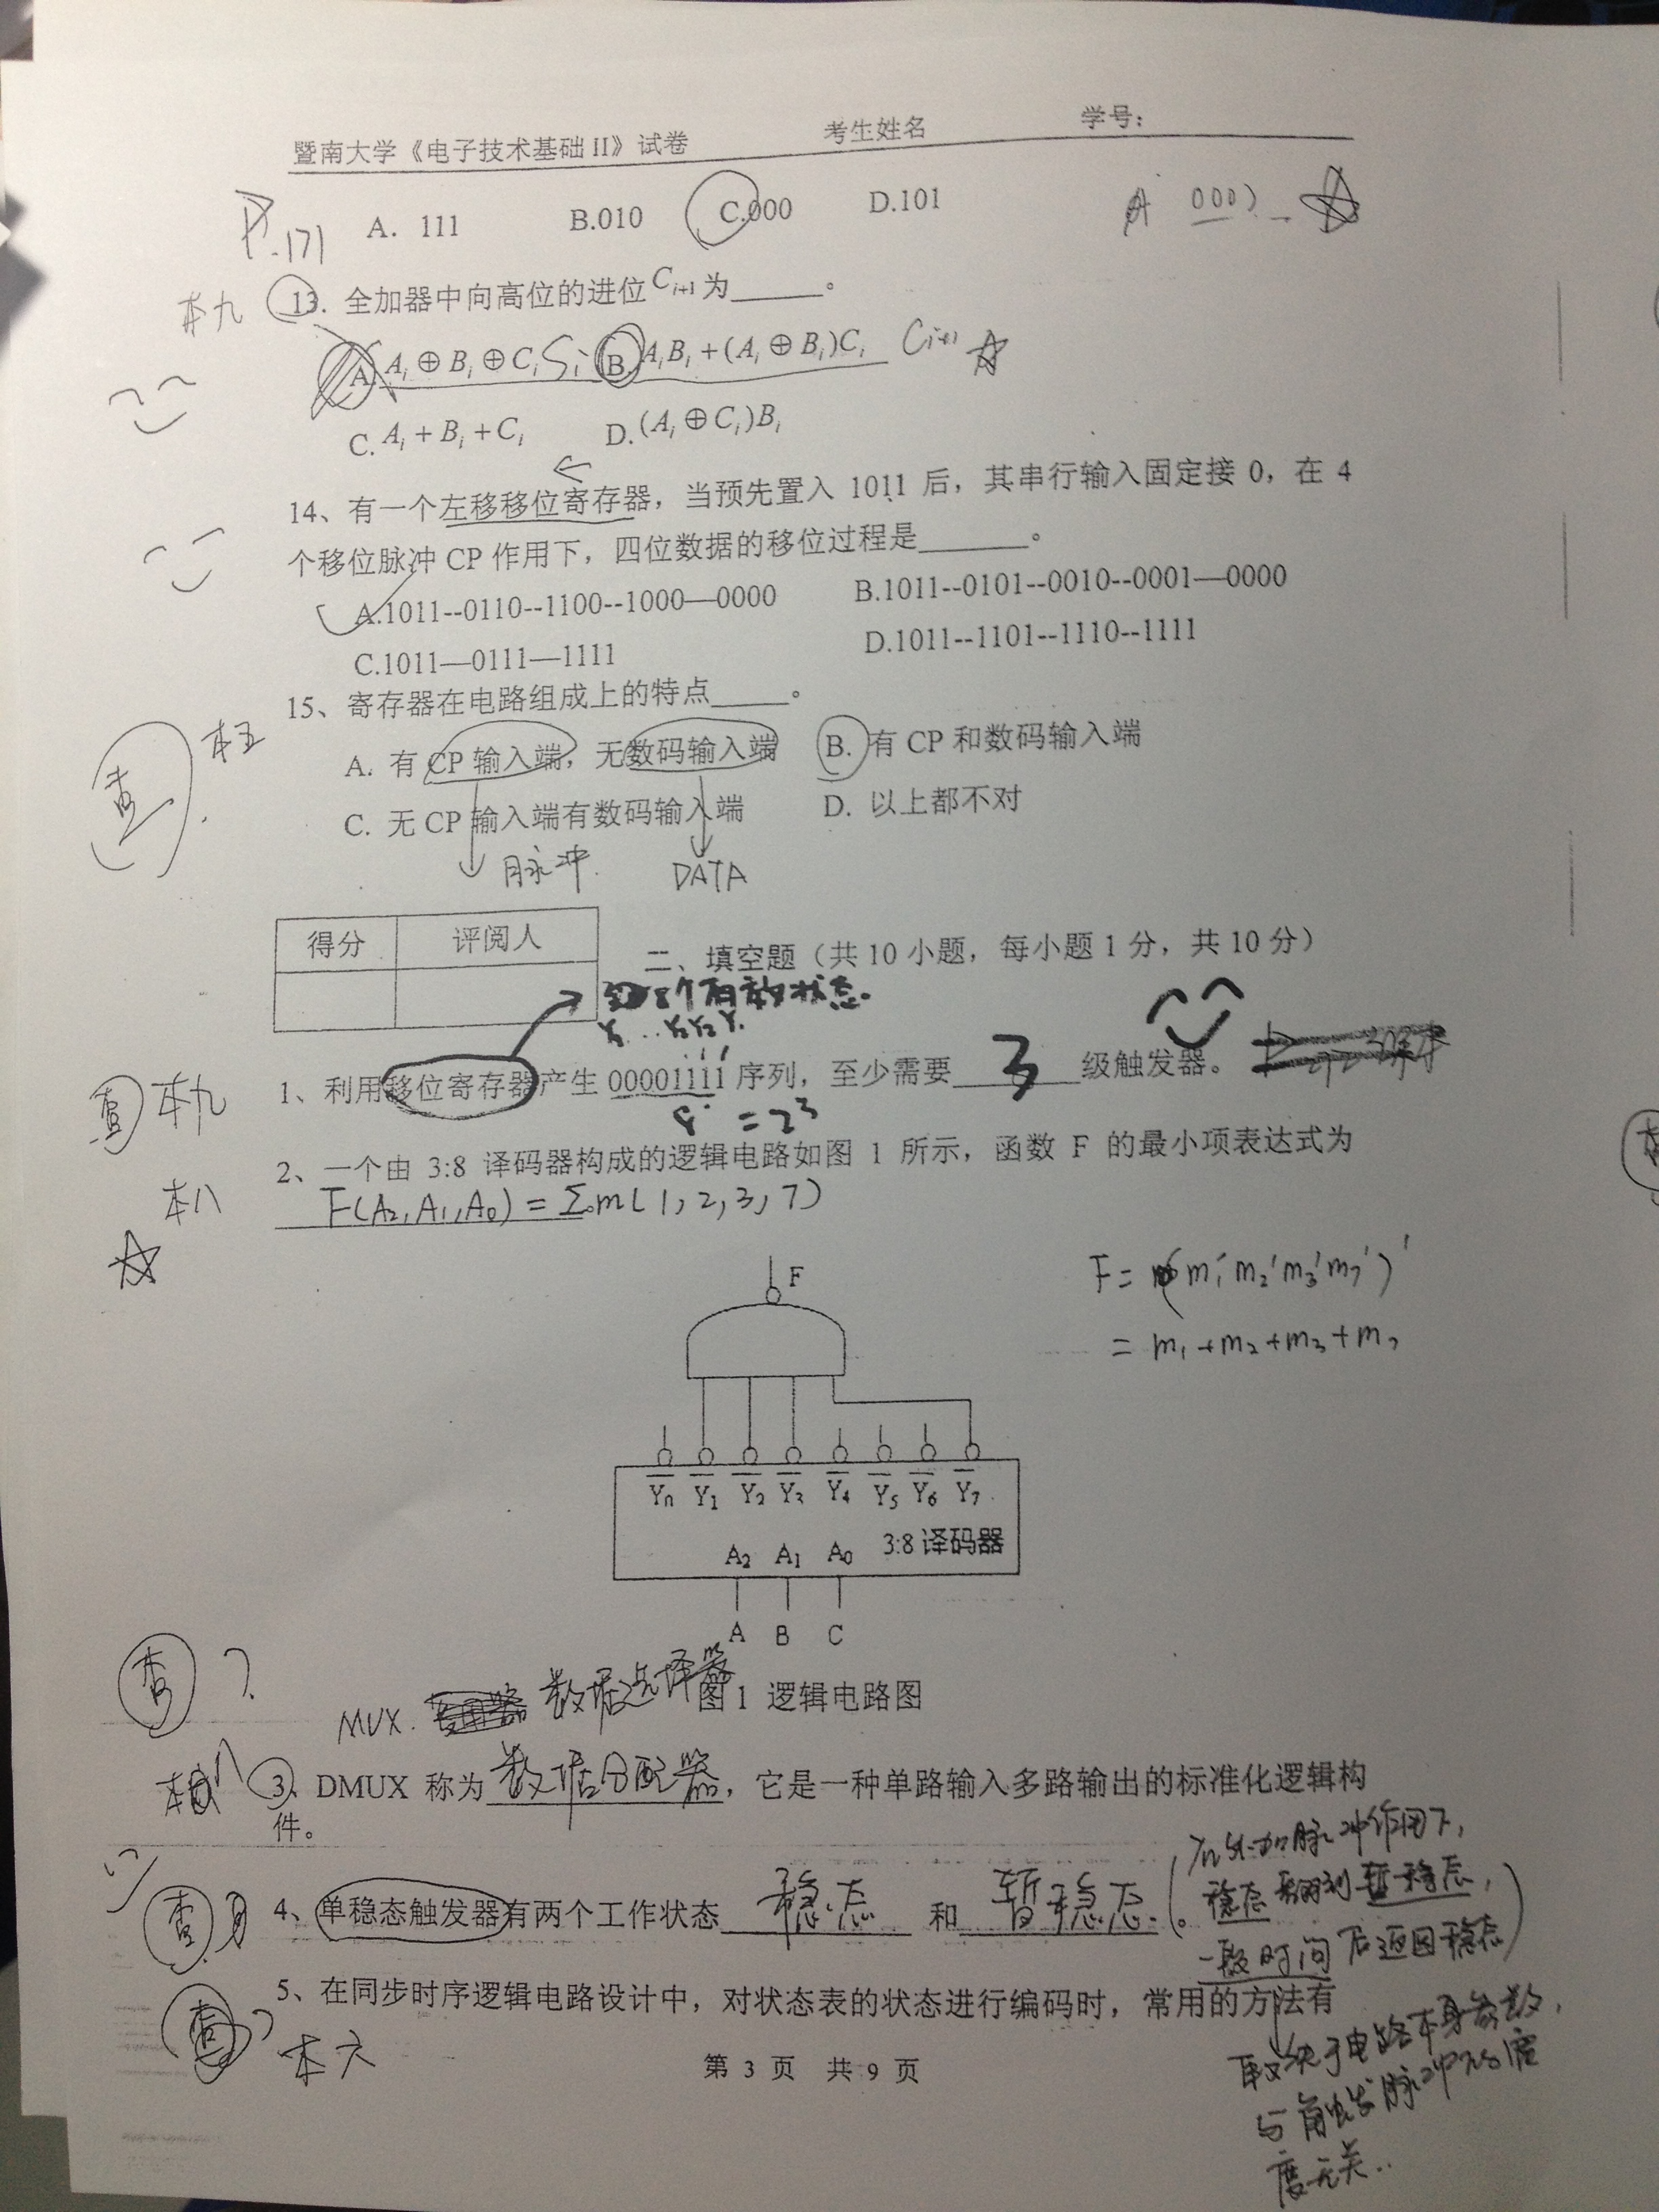 暨南大学《电子技术基础 II》试卷 考生姓名 学号：
P.171 A. 111 B.010 C.000 D.101
本九 13. 全加器中向高位的进位 Cᵢ₊₁ 为_____。
A. Aᵢ ⊕ Bᵢ ⊕ Cᵢ Sᵢ B. AᵢBᵢ + (Aᵢ ⊕ Bᵢ)Cᵢ Cᵢ₊₁ ☆
C. Aᵢ + Bᵢ + Cᵢ D. (Aᵢ ⊕ Cᵢ)Bᵢ
←
14、有一个左移移位寄存器，当预先置入 1011 后，其串行输入固定接 0，在 4
个移位脉冲 CP 作用下，四位数据的移位过程是______。
A.1011--0110--1100--1000—0000 B.1011--0101--0010--0001—0000
C.1011—0111—1111 D.1011--1101--1110--1111
15、寄存器在电路组成上的特点_____。
查 本五
A. 有 CP 输入端，无数码输入端 B. 有 CP 和数码输入端
C. 无 CP 输入端有数码输入端 D. 以上都不对
脉冲 DATA
得分 评阅人
二、填空题（共 10 小题，每小题 1 分，共 10 分）
8个有效状态。
查 本九 1、利用移位寄存器产生 00001111 序列，至少需要 3 级触发器。
8 = 2³
2、一个由 3:8 译码器构成的逻辑电路如图 1 所示，函数 F 的最小项表达式为
本八 F(A₂,A₁,A₀) = Σm(1,2,3,7)
☆
F
F = (m₁'m₂'m₃'m₇')'
= m₁+m₂+m₃+m₇
Y̅₀ Y̅₁ Y̅₂ Y̅₃ Y̅₄ Y̅₅ Y̅₆ Y̅₇
A₂ A₁ A₀ 3:8 译码器
A B C
查 ?
图 1 逻辑电路图
MUX. 数据选择器
3、DMUX 称为 数据分配器，它是一种单路输入多路输出的标准化逻辑构
件。
查 4、单稳态触发器有两个工作状态 稳态 和 暂稳态。
(在外加脉冲作用下，
稳态翻到暂稳态，
一段时间后返回稳态)
查 5、在同步时序逻辑电路设计中，对状态表的状态进行编码时，常用的方法有
本六
取决于电路本身参数，
与触发脉冲宽度
无关..
第 3 页 共 9 页